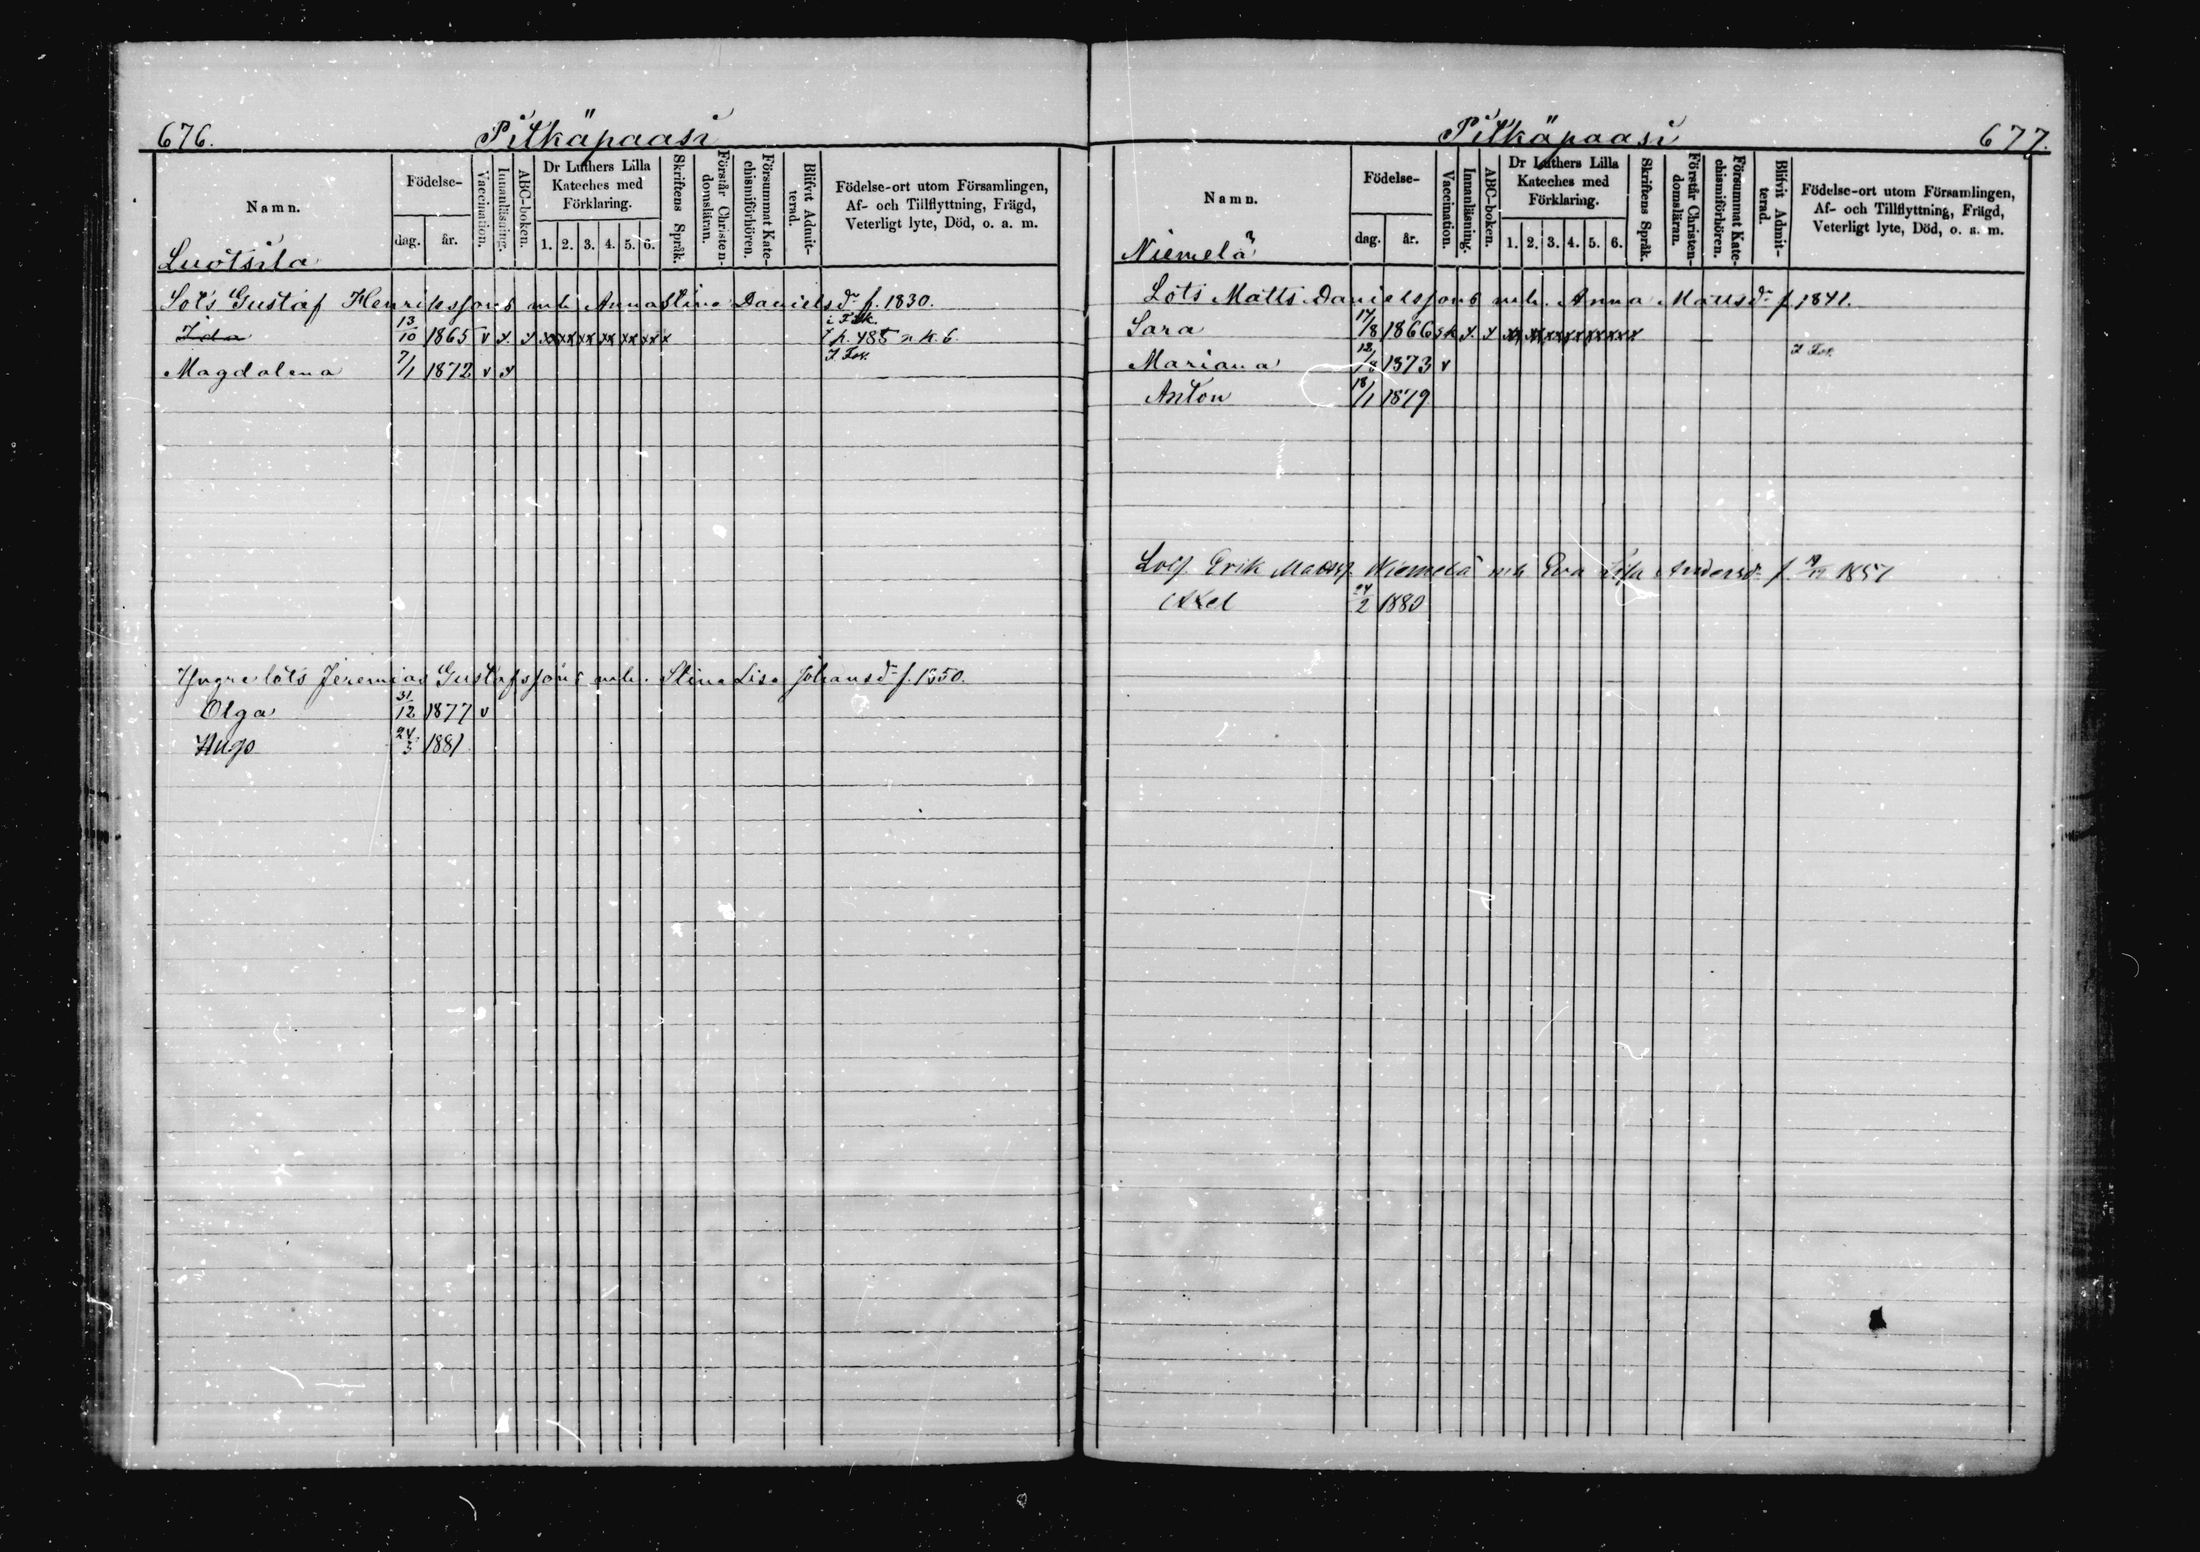 676.
Pitkäpaasi
Namn.
Födelse-
dag.
år.
Vaccination.
Innanläsning.
ABC-boken.
Dr Luthers Lilla
Kateches med
Förklaring.
1. 2. 3. 4. 5. 6.
Skriftens Språk.
Förstår Christen-
domsläran.
Försummat Kate-
chismiförhören.
Blifvit Admit-
terad.
Födelse-ort utom Församlingen,
Af- och Tillflyttning, Frägd,
Veterligt lyte, Död, o. a. m.
Luotsila
Lots Gustaf Henrikssons mh. Anna Stina Danielsdr f. 1830.
Ida 13/10 1865 v x x xx xx xx xx xx xx x
p. 485 n k. 6.
Magdalena 7/1 1872 v x
Yngre lots Jeremias Gustafssons mh. Stina Lisa Johansdr f. 1850.
Olga 31/12 1877 v
Hugo 24/3 1881
677.
Pitkäpaasi
Namn.
Födelse-
dag.
år.
Vaccination.
Innanläsning.
ABC-boken.
Dr Luthers Lilla
Kateches med
Förklaring.
1. 2. 3. 4. 5. 6.
Skriftens Språk.
Förstår Christen-
domsläran.
Försummat Kate-
chismiförhören.
Blifvit Admit-
terad.
Födelse-ort utom Församlingen,
Af- och Tillflyttning, Frägd,
Veterligt lyte, Död, o. a. m.
Niemelä
Lots Matts Danielssons mh. Anna Mattsdr f. 1841.
Sara 17/8 1866 sk x x xx xx xx xx xx xx x
Mariana 1873 v
Anton 18/1 1879
Erik Niemelä mh Eva Lisa Andersdr f. 1857
Axel 24/2 1880